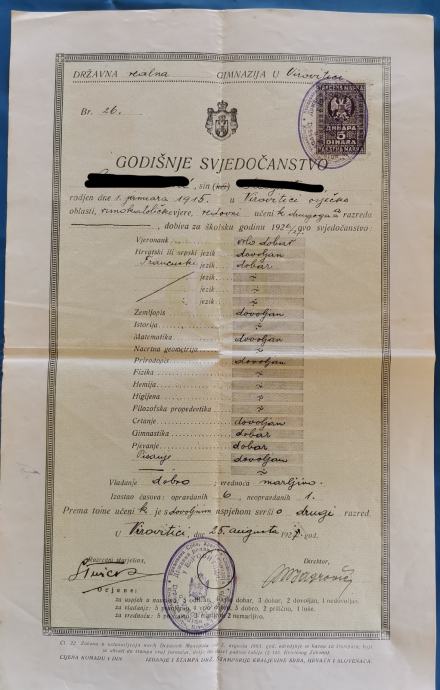 DRŽAVNA realna GIMNAZIJA U Virovitici
Br. 26.
ДИНАРА
5
DINARA
GODIŠNJE SVJEDOČANSTVO
, sin (kći)
rodjen dne 1. januara 1915. u Virovitici osječke
oblasti, rimokatoličke vjere, redovni učenik drugoga a razreda
, dobiva za školsku godinu 1926/27. ovo svjedočanstvo:
Vjeronauk vrlo dobar
Hrvatski ili srpski jezik dovoljan
Francuski jezik dobar
jezik
jezik
jezik
Zemljopis dovoljan
Istorija
Matematika dovoljan
Nacrtna geometrija
Prirodopis dovoljan
Fizika
Hemija
Higijena
Filozofska propedevtika
Crtanje dovoljan
Gimnastika dobar
Pjevanje dobar
Pisanje dovoljan
Vladanje dobro ; vrednoća marljivo.
Izostao časova: opravdanih 6, neopravdanih 1.
Prema tome učenik je s dovoljnim uspjehom svršio drugi razred.
U Virovitici, dne 25. augusta 1927. god.
Razredni starješina, Direktor,
Ocjene:
za uspjeh u nauci: 5 odličan, 4 vrlo dobar, 3 dobar, 2 dovoljan, 1 nedovoljan.
za vladanje: 5 primjerno, 4 vrlo dobro, 3 dobro, 2 prilično, 1 loše.
CIJENA KOMADU 1 DIN IZDANJE I ŠTAMPA DRŽ. ŠTAMPARIJE KRALJEVINE SRBA, HRVATA I SLOVENACA.